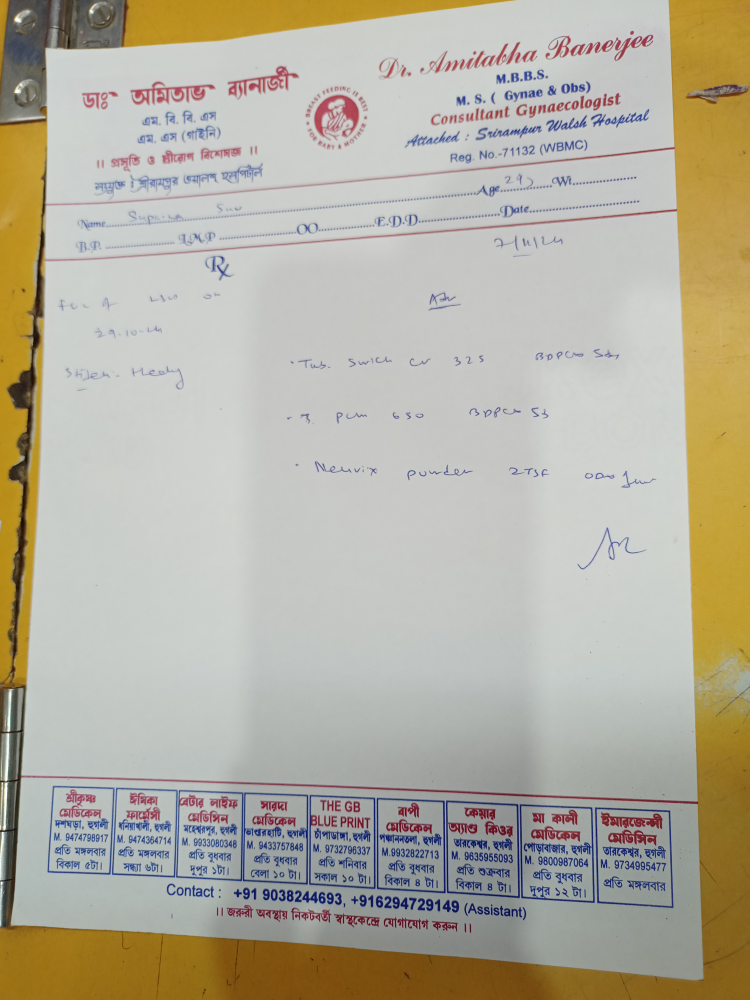 ডাঃ অমিতাভ ব্যানার্জী
এম. বি. বি. এস
এম. এস (গাইনি)
।। প্রসূতি ও স্ত্রীরোগ বিশেষজ্ঞ ।।
সংযুক্ত : শ্রীরামপুর ওয়ালশ হসপিটাল
BREAST FEEDING IS BEST FOR BABY & MOTHER
Dr. Amitabha Banerjee
M.B.B.S.
M. S. ( Gynae & Obs)
Consultant Gynaecologist
Attached : Srirampur Walsh Hospital
Reg. No.-71132 (WBMC)
Name Age 29 Wt
B.P. L.M.P OO E.D.D Date
7/11/24
Rx
on
29.10.24
Adv
Healthy
• Tab. Swich CV 325
• T. PCM 650
• Neuvix powder 2TSF
শ্রীকৃষ্ণ মেডিকেল
দশঘড়া, হুগলী
M. 9474798917
প্রতি মঙ্গলবার
বিকাল ৫টা।
ঈষিকা ফার্মেসী
ধনিয়াখালী, হুগলী
M. 9474364714
প্রতি মঙ্গলবার
সন্ধ্যা ৬টা।
বেটার লাইফ মেডিসিন
মহেশ্বরপুর, হুগলী
M. 9933080348
প্রতি বুধবার
দুপুর ১টা।
সারদা মেডিকেল
ভাণ্ডারহাটি, হুগলী
M. 9433757848
প্রতি বুধবার
বেলা ১০ টা।
THE GB BLUE PRINT
চাঁপাডাঙ্গা, হুগলী
M. 9732796337
প্রতি শনিবার
সকাল ১০ টা।
বাপী মেডিকেল
পঞ্চাননতলা, হুগলী
M.9932822713
প্রতি বুধবার
বিকাল ৪ টা।
কেয়ার অ্যাণ্ড কিওর
তারকেশ্বর, হুগলী
M. 9635955093
প্রতি শুক্রবার
বিকাল ৪ টা।
মা কালী মেডিকেল
পোড়াবাজার, হুগলী
M. 9800987064
প্রতি বুধবার
দুপুর ১২ টা।
ইমারজেন্সী মেডিসিন
তারকেশ্বর, হুগলী
M. 9734995477
প্রতি মঙ্গলবার
Contact : +91 9038244693, +916294729149 (Assistant)
।। জরুরী অবস্থায় নিকটবর্তী স্বাস্থকেন্দ্রে যোগাযোগ করুন ।।